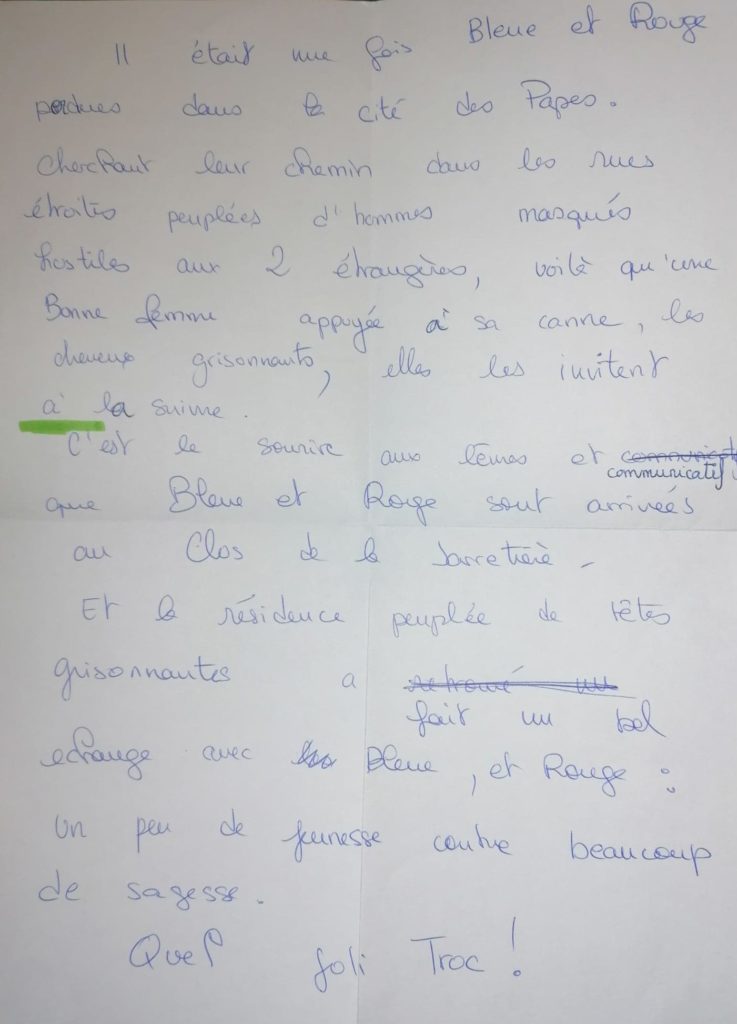 Il était une fois Bleue et Rouge
perdues dans la cité des Papes.
Cherchant leur chemin dans les rues
étroites peuplées d'hommes masqués
hostiles aux 2 étrangères, voilà qu'une
Bonne femme appuyée à sa canne, les
cheveux grisonnants, elles les invitent
à la suivre.
C'est le sourire aux lèvres et communicatif
que Bleue et Rouge sont arrivées
au Clos de la Jarretière -
Et la résidence peuplée de têtes
grisonnantes a
fait un bel
echange avec Bleue, et Rouge :
Un peu de jeunesse contre beaucoup
de sagesse.
Quel joli Troc !